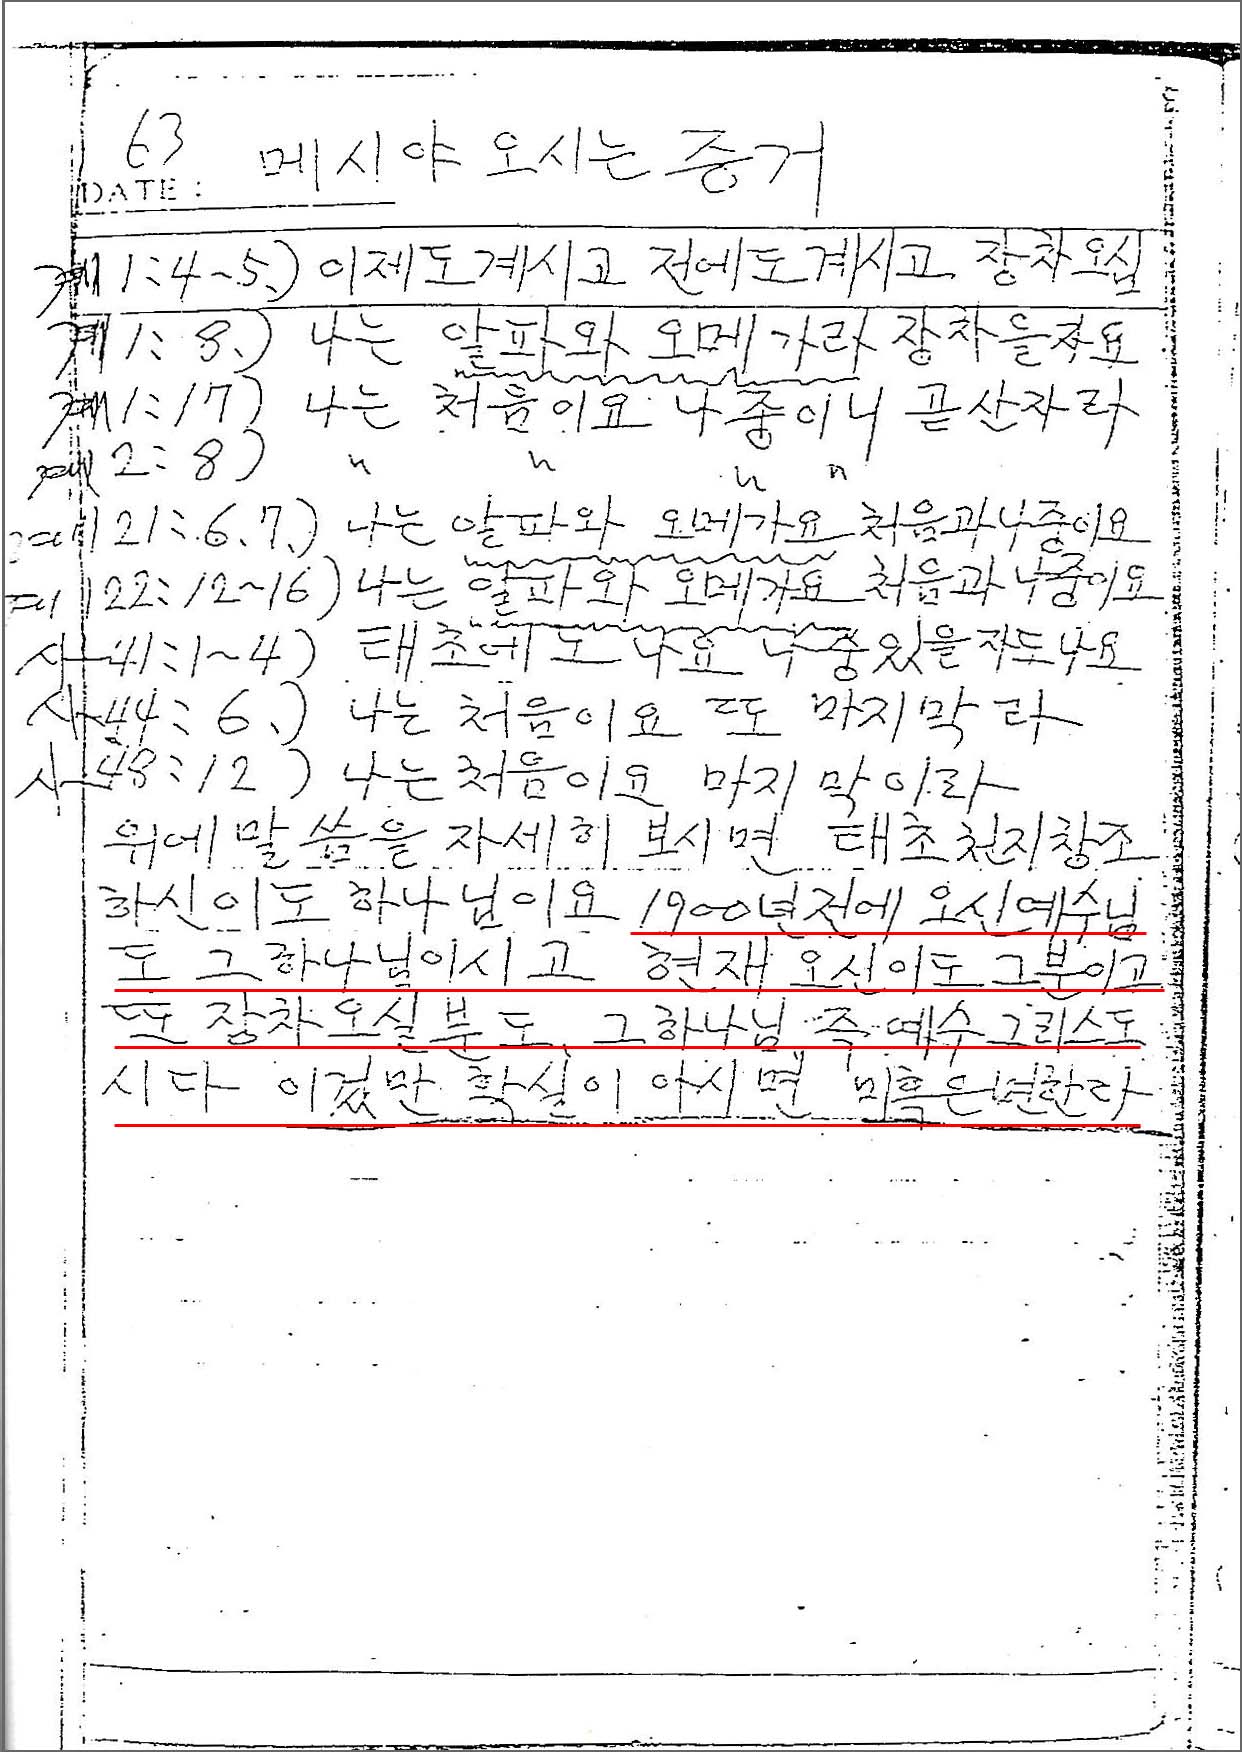 63 메시야 오시는 증거
DATE :
계 1:4~5.) 이제도계시고 전에도계시고 장차오십
계 1: 8.) 나는 알파와 오메가라 장차올자요
계 1:17) 나는 처음이요 나중이니 곧산자라
계 2: 8) 〃 〃 〃 〃
계 21:.6.7.) 나는 알파와 오메가요 처음과나중이요
계 22:12~16) 나는 알파와 오메가요 처음과 나중이요
사 41:1~4) 태초에도 나요 나중있을자도나요
사 44: 6.) 나는 처음이요 또 마지막 라
사 48:12 ) 나는처음이요 마지막이라
위에 말씀을 자세히 보시면 태초천지창조
하신이도 하나님이요 1900년전에 오신예수님
도 그하나님이시고 현재 오신이도 그분이고
또 장차오실분도, 그하나님 즉 예수그리스도
시다 이겄만 확실이 아시면 미혹은면한라